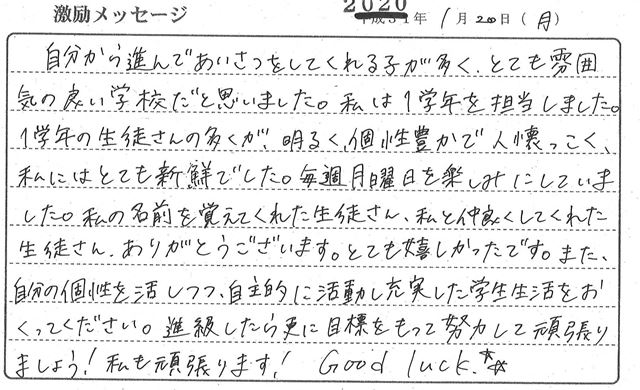 激励メッセージ 2020 平成31年 1月20日(月)
自分から進んであいさつをしてくれる子が多く、とても雰囲
気の良い学校だと思いました。私は1学年を担当しました。
1学年の生徒さんの多くが、明るく、個性豊かで人懐っこく、
私にはとても新鮮でした。毎週月曜日を楽しみにしていま
した。私の名前を覚えてくれた生徒さん、私と仲良くしてくれた
生徒さん、ありがとうございます。とても嬉しかったです。また、
自分の個性を活しつつ、自主的に活動し充実した学生生活をお
くってください。進級したら更に目標をもって努力して頑張り
ましょう!私も頑張ります! Good luck.☆☆